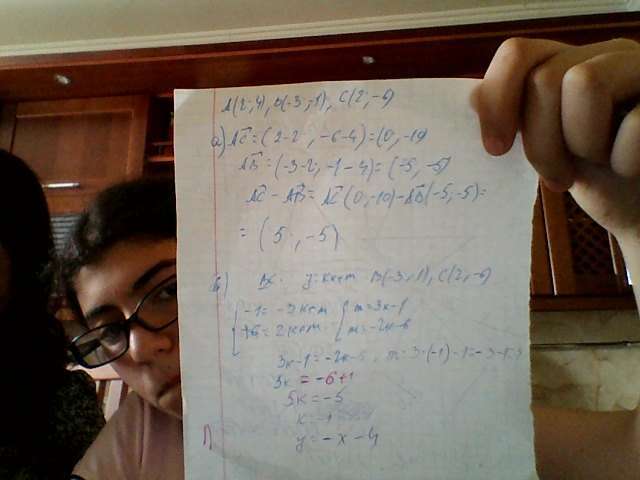 A(2;4), B(-3;-1), C(2;-6)
a) AC = (2-2; -6-4) = (0, -10)
AB = (-3-2; -1-4) = (-5, -5)
AC - AB = AC (0, -10) - AB (-5; -5) =
= (5; -5)
y = kx+m B(-3;-1), C(2;-6)
-1 = -3k+m m = 3k-1
-6 = 2k+m m = -2k-6
3k-1 = -2k-6, m = 3·(-1)-1 = -3-1
3k = -6+1
5k = -5
k = -1
y = -x-4